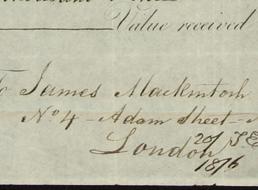 Value received
To James Mackintosh
No 4 - Adam Street -
London
20/
1876